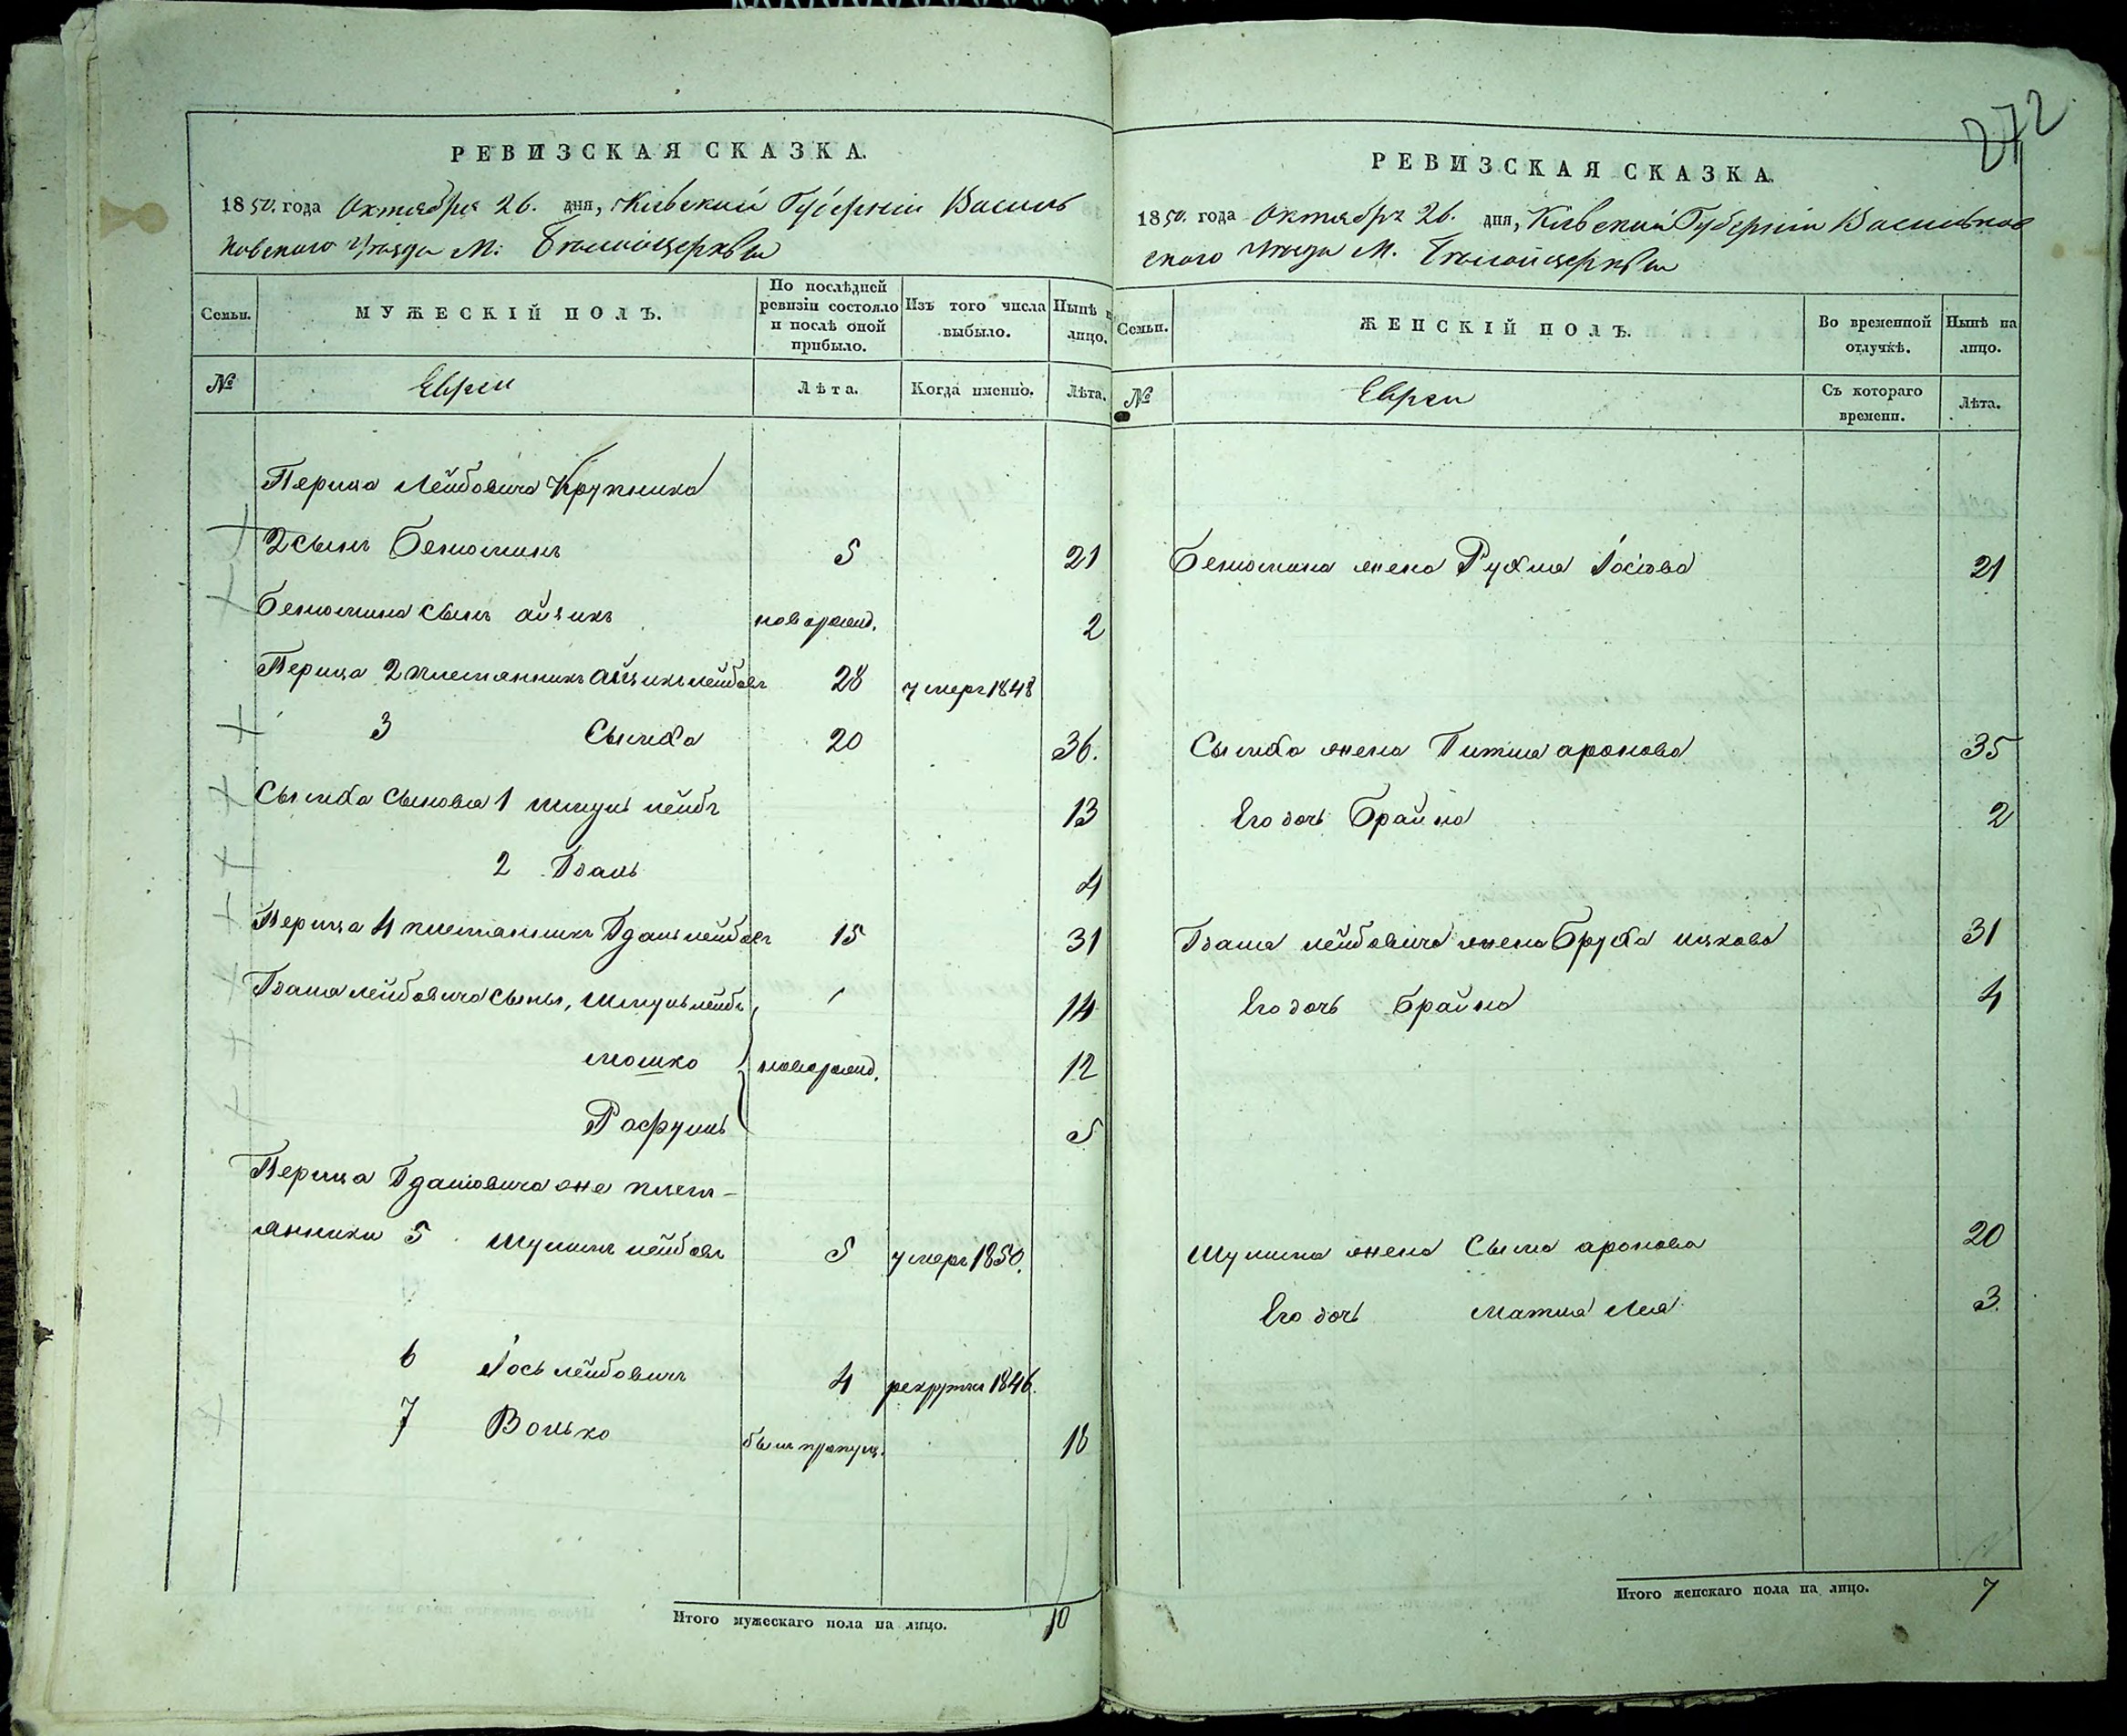 272
РЕВИЗСКАЯ СКАЗКА.
1850. года Октября 26. дня, Кіевской Губерніи Василь
ковского Уѣзда М. Бѣлойцеркви
Семьи.
МУЖЕСКІЙ ПОЛЪ.
По послѣдней ревизіи состояло и послѣ оной прибыло.
Изъ того числа выбыло.
Нынѣ н лицо.
№
Евреи
Лѣта.
Когда именно.
Лѣта.
Перица Лейбовича Крупника
2 сынъ Бенюминъ 5 21
Бенюмина сынъ Айзикъ новорожд. 2
Перица 2 племянникъ Айзикъ Лейбовъ 28 умеръ 1848
3 Сымха 20 36.
Сымха сыновья 1 Шмуль Лейбъ 13
2 Гдаль 4
Перица 4 племянникъ Гдаль Лейбовъ 15 31
Гдаля Лейбовича сыны, Шмуль Лейбъ 14
Мошко новорожд. 12
Рафуиль 5
Перица Гдаліовича же плем-
янники 5 Шулимъ Лейбовъ 5 умеръ 1850.
6 Іось Лейбовичъ 4 рекрутъ 1846.
7 Волько былъ пропущ. 18
Итого мужескаго пола на лицо. 10
РЕВИЗСКАЯ СКАЗКА.
1850. года Октября 26. дня, Кіевской Губерніи Васильков
ского Уѣзда М. Бѣлойцеркви
Семьи.
ЖЕНСКІЙ ПОЛЪ.
Во временной отлучкѣ.
Нынѣ на лицо.
№
Евреи
Съ котораго времени.
Лѣта.
Бенюмина жена Рухля Іосіова 21
Сымха жена Гитля Аронова 35
Его дочь Брайна 2
Гдаля Лейбовича жена Бруха Ицкова 31
Его дочь Брайна 4
Шулима жена Сыма Аронова 20
Его дочь Матля Лея 3.
Итого женскаго пола на лицо. 7